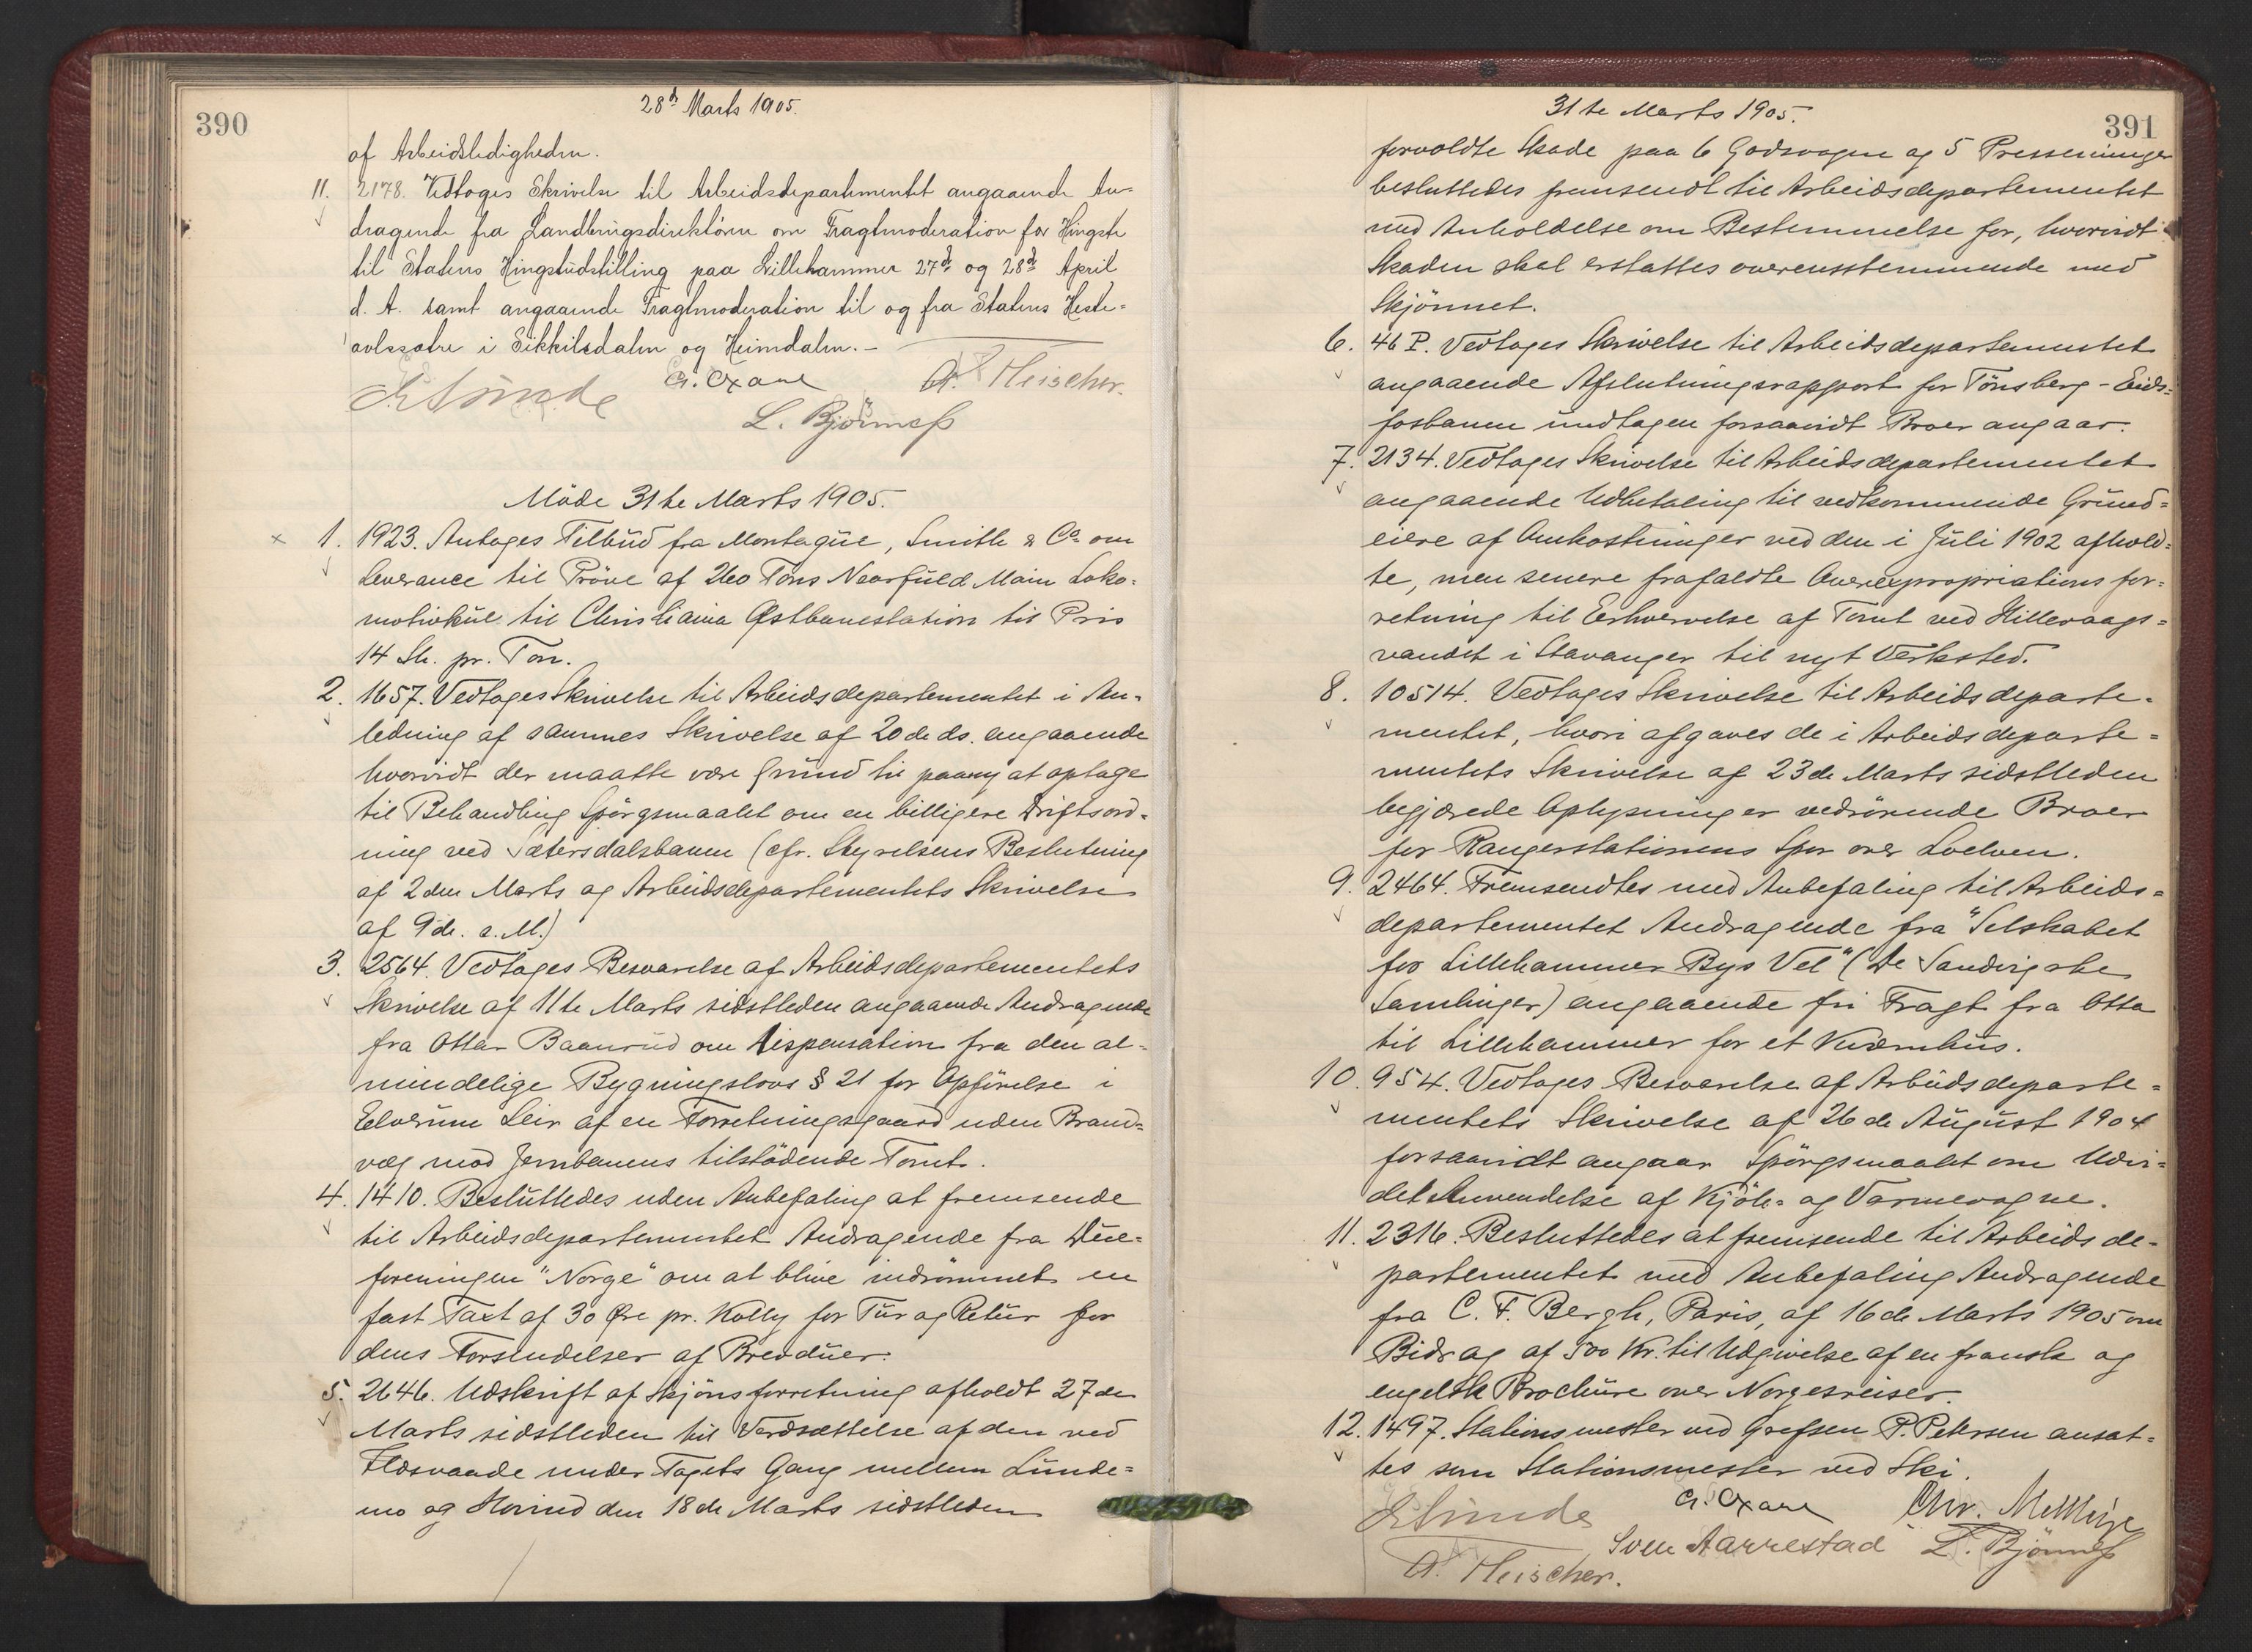 390
28d Marts 1905.
af Arbeidsledigheden.
11. 2178. Vedtoges Skrivelse til Arbeidsdepartementet angaaende An-
dragende fra Landbrugsdirektören om Fragtmoderation for Hingste
til Statens Hingsteudstilling paa Lillehammer 27de og 28de April
d. A. samt angaaende Fragtmoderation til og fra Statens Heste-
avlssætre i Sikkilsdalen og Heimdalen. -
G. Oxaae A. Fleischer.
L. Björnness
Möde 31te Marts 1905.
x 1. 1923. Antoges Tilbud fra Montague, Smith & Co. om
Leverance til Pröve af 260 Tons Nearfuld Main Loko-
motivkul til Christiania Østbanestation til Pris
14 Sh. pr. Ton.
2. 1657. Vedtoges Skrivelse til Arbeidsdepartementet i An-
ledning af sammes Skrivelse af 20de ds. angaaende
hvorvidt der maatte være Grund til paany at optage
til Behandling Spörgsmaalet om en billigere Driftsord-
ning ved Sætersdalsbanen (cfr. Styrelsens Beslutning
af 2den Marts og Arbeidsdepartementets Skrivelse
af 9de s. M.)
3. 2564. Vedtoges Besvarelse af Arbeidsdepartementets
Skrivelse af 11te Marts sidstleden angaaende Andragende
fra Ottar Baanrud om Dispensation fra den al-
mindelige Bygningslovs § 21 for Opförelse i
Elverum Leir af en Forretningsgaard uden Brand-
væg mod Jernbanens tilstödende Tomt.
4. 1410. Besluttedes uden Anbefaling at fremsende
til Arbeidsdepartementet Andragende fra Due-
foreningen "Norge" om at blive indrömmet en
fast Taxt af 30 Øre pr. Kolly for Tur og Retur for
dens Forsendelser af Brevduer.
5. 2646. Udskrift af Skjönsforretning afholdt 27de
Marts sidstleden til Værdsættelse af den ved
Ildsvaade under Togets Gang mellem Lunde-
mo og Hovind den 18de Marts sidstleden
391
31te Marts 1905.
forvoldte Skade paa 6 Godsvogne og 5 Presseninger
besluttedes fremsendt til Arbeidsdepartementet
med Anholdelse om Bestemmelse for, hvorvidt
Skaden skal erstattes overensstemmende med
Skjönnet.
6. 46 P. Vedtoges Skrivelse til Arbeidsdepartementet
angaaende Afslutningsrapport for Tönsberg-Eids-
fosbanen undtagen forsaavidt Broer angaar.
7. 2134. Vedtoges Skrivelse til Arbeidsdepartementet
angaaende Udbetaling til vedkommende Grund-
eiere af Omkostninger ved den i Juli 1902 afhold-
te, men senere frafaldte Overexpropriationsfor-
retning til Erhvervelse af Tomt ved Hillevaags-
vandet i Stavanger til nyt Verksted.
8. 10514. Vedtoges Skrivelse til Arbeidsdeparte-
mentet, hvori afgaves de i Arbeidsdeparte-
mentets Skrivelse af 23de Marts sidstleden
begjærede Oplysninger vedrörende Broer
for Rangerstationens Spor over Loelven.
9. 2464. Fremsendtes med Anbefaling til Arbeids-
departementet Andragende fra "Selskabet
for Lillehammer Bys Vel" (De Sandvigske
Samlinger) angaaende fri Fragt fra Otta
til Lillehammer for et Kværnhus.
10. 954. Vedtoges Besvarelse af Arbeidsdeparte-
mentets Skrivelse af 26de August 1904
forsaavidt angaar Spörgsmaalet om Udvi-
det Anvendelse af Kjöle- og Varmevogne.
11. 2316. Besluttedes at fremsende til Arbeidsde-
partementet med Anbefaling Andragende
fra C. F. Bergh, Paris, af 16de Marts 1905 om
Bidrag af 500 Kr. til Udgivelse af en fransk og
engelsk Brochure over Norgesreiser.
12. 1497. Stationsmester ved Grefsen P. Petersen ansat-
tes som Stationsmester ved Ski.
G. Oxaae Chr.
Sven Aarrestad L. Björnness
A. Fleischer.